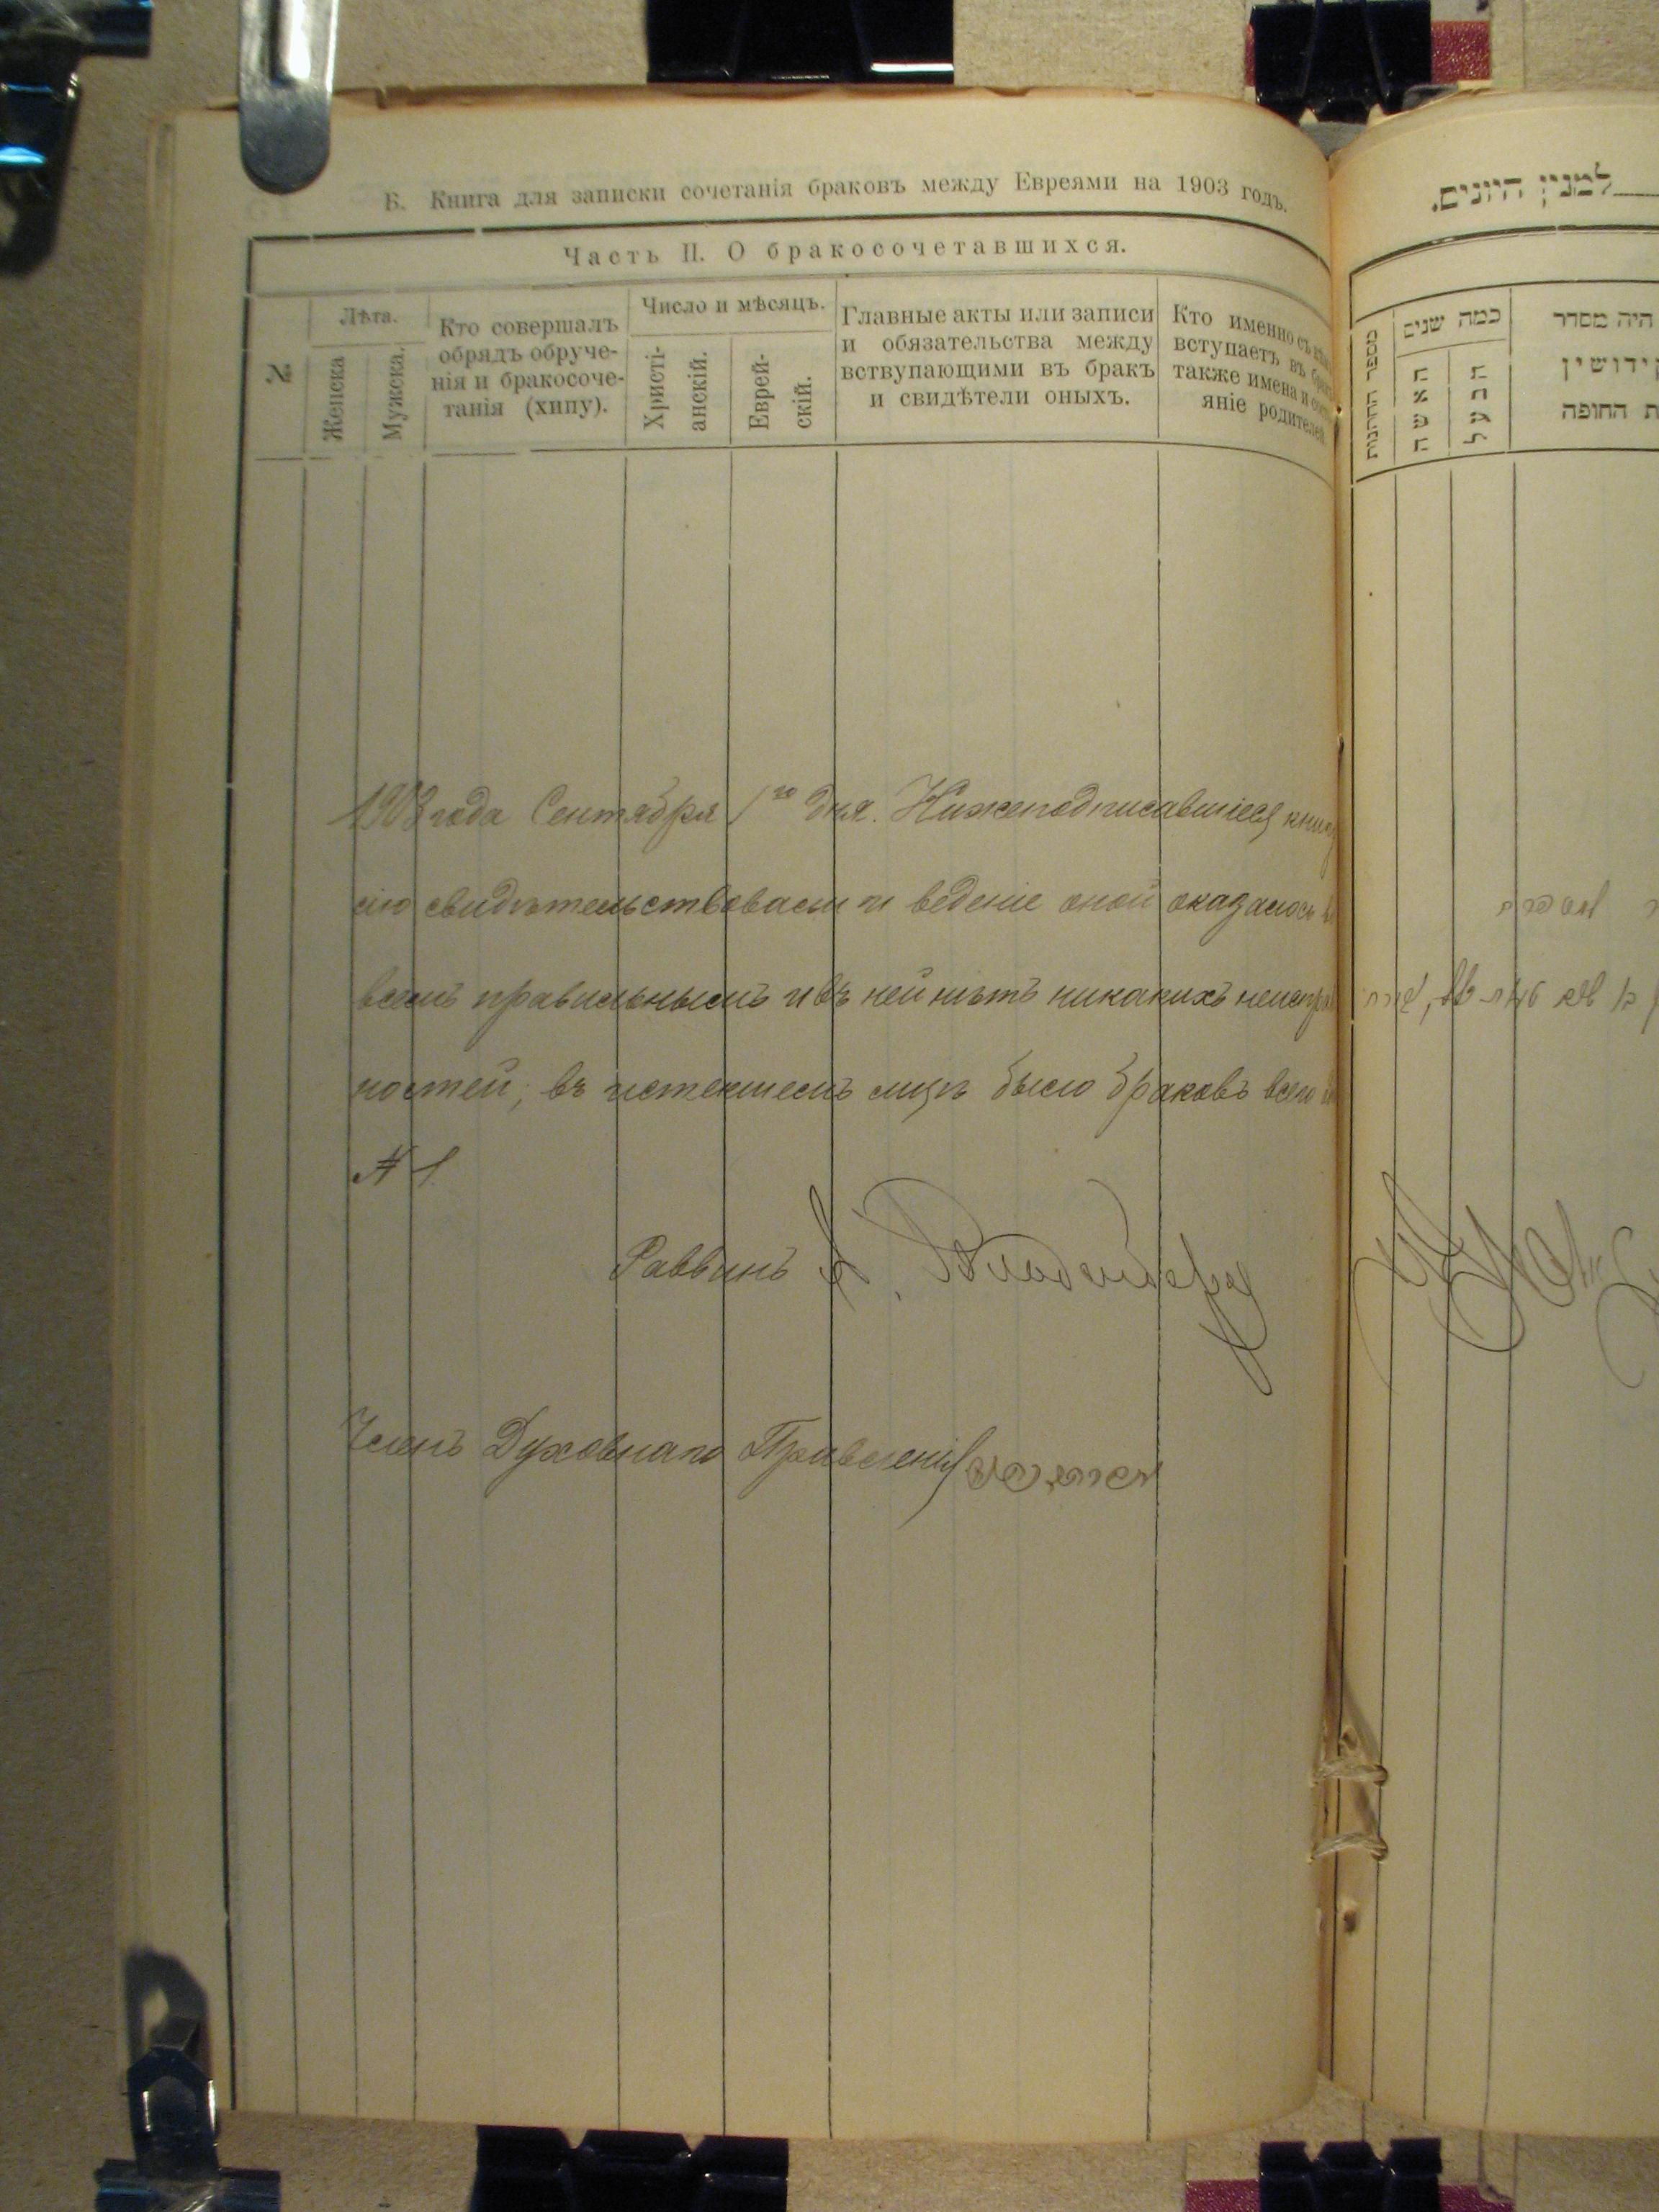 Б. Книга для записки сочетанія браковъ между Евреями на 1903 годъ.
Часть II. О бракосочетавшихся.
№
Лѣта.
Женска
Мужска.
Кто совершалъ
обрядъ обруче-
нія и бракосоче-
танія (хипу).
Число и мѣсяцъ.
Христі-
анскій.
Еврей-
скій.
Главные акты или записи
и обязательства между
вствупающими въ бракъ
и свидѣтели оныхъ.
Кто именно съ
вступаетъ въ
также имена и
яніе родителей
1903 года Сентября 1го дня. Нижеподписавшіеся книгу
сію свидѣтельствовали и веденіе оной оказалось
всемъ правильнымъ и въ ней нѣтъ никакихъ неиспра
ностей, въ истекшемъ мцѣ было браковъ всего
№ 1.
Раввинъ
Членъ Духовнаго Правленія
למנין היונים.
מספר החתונות
כמה שנים
האשה
הבעל
היה מסדר
קידושין
החופה